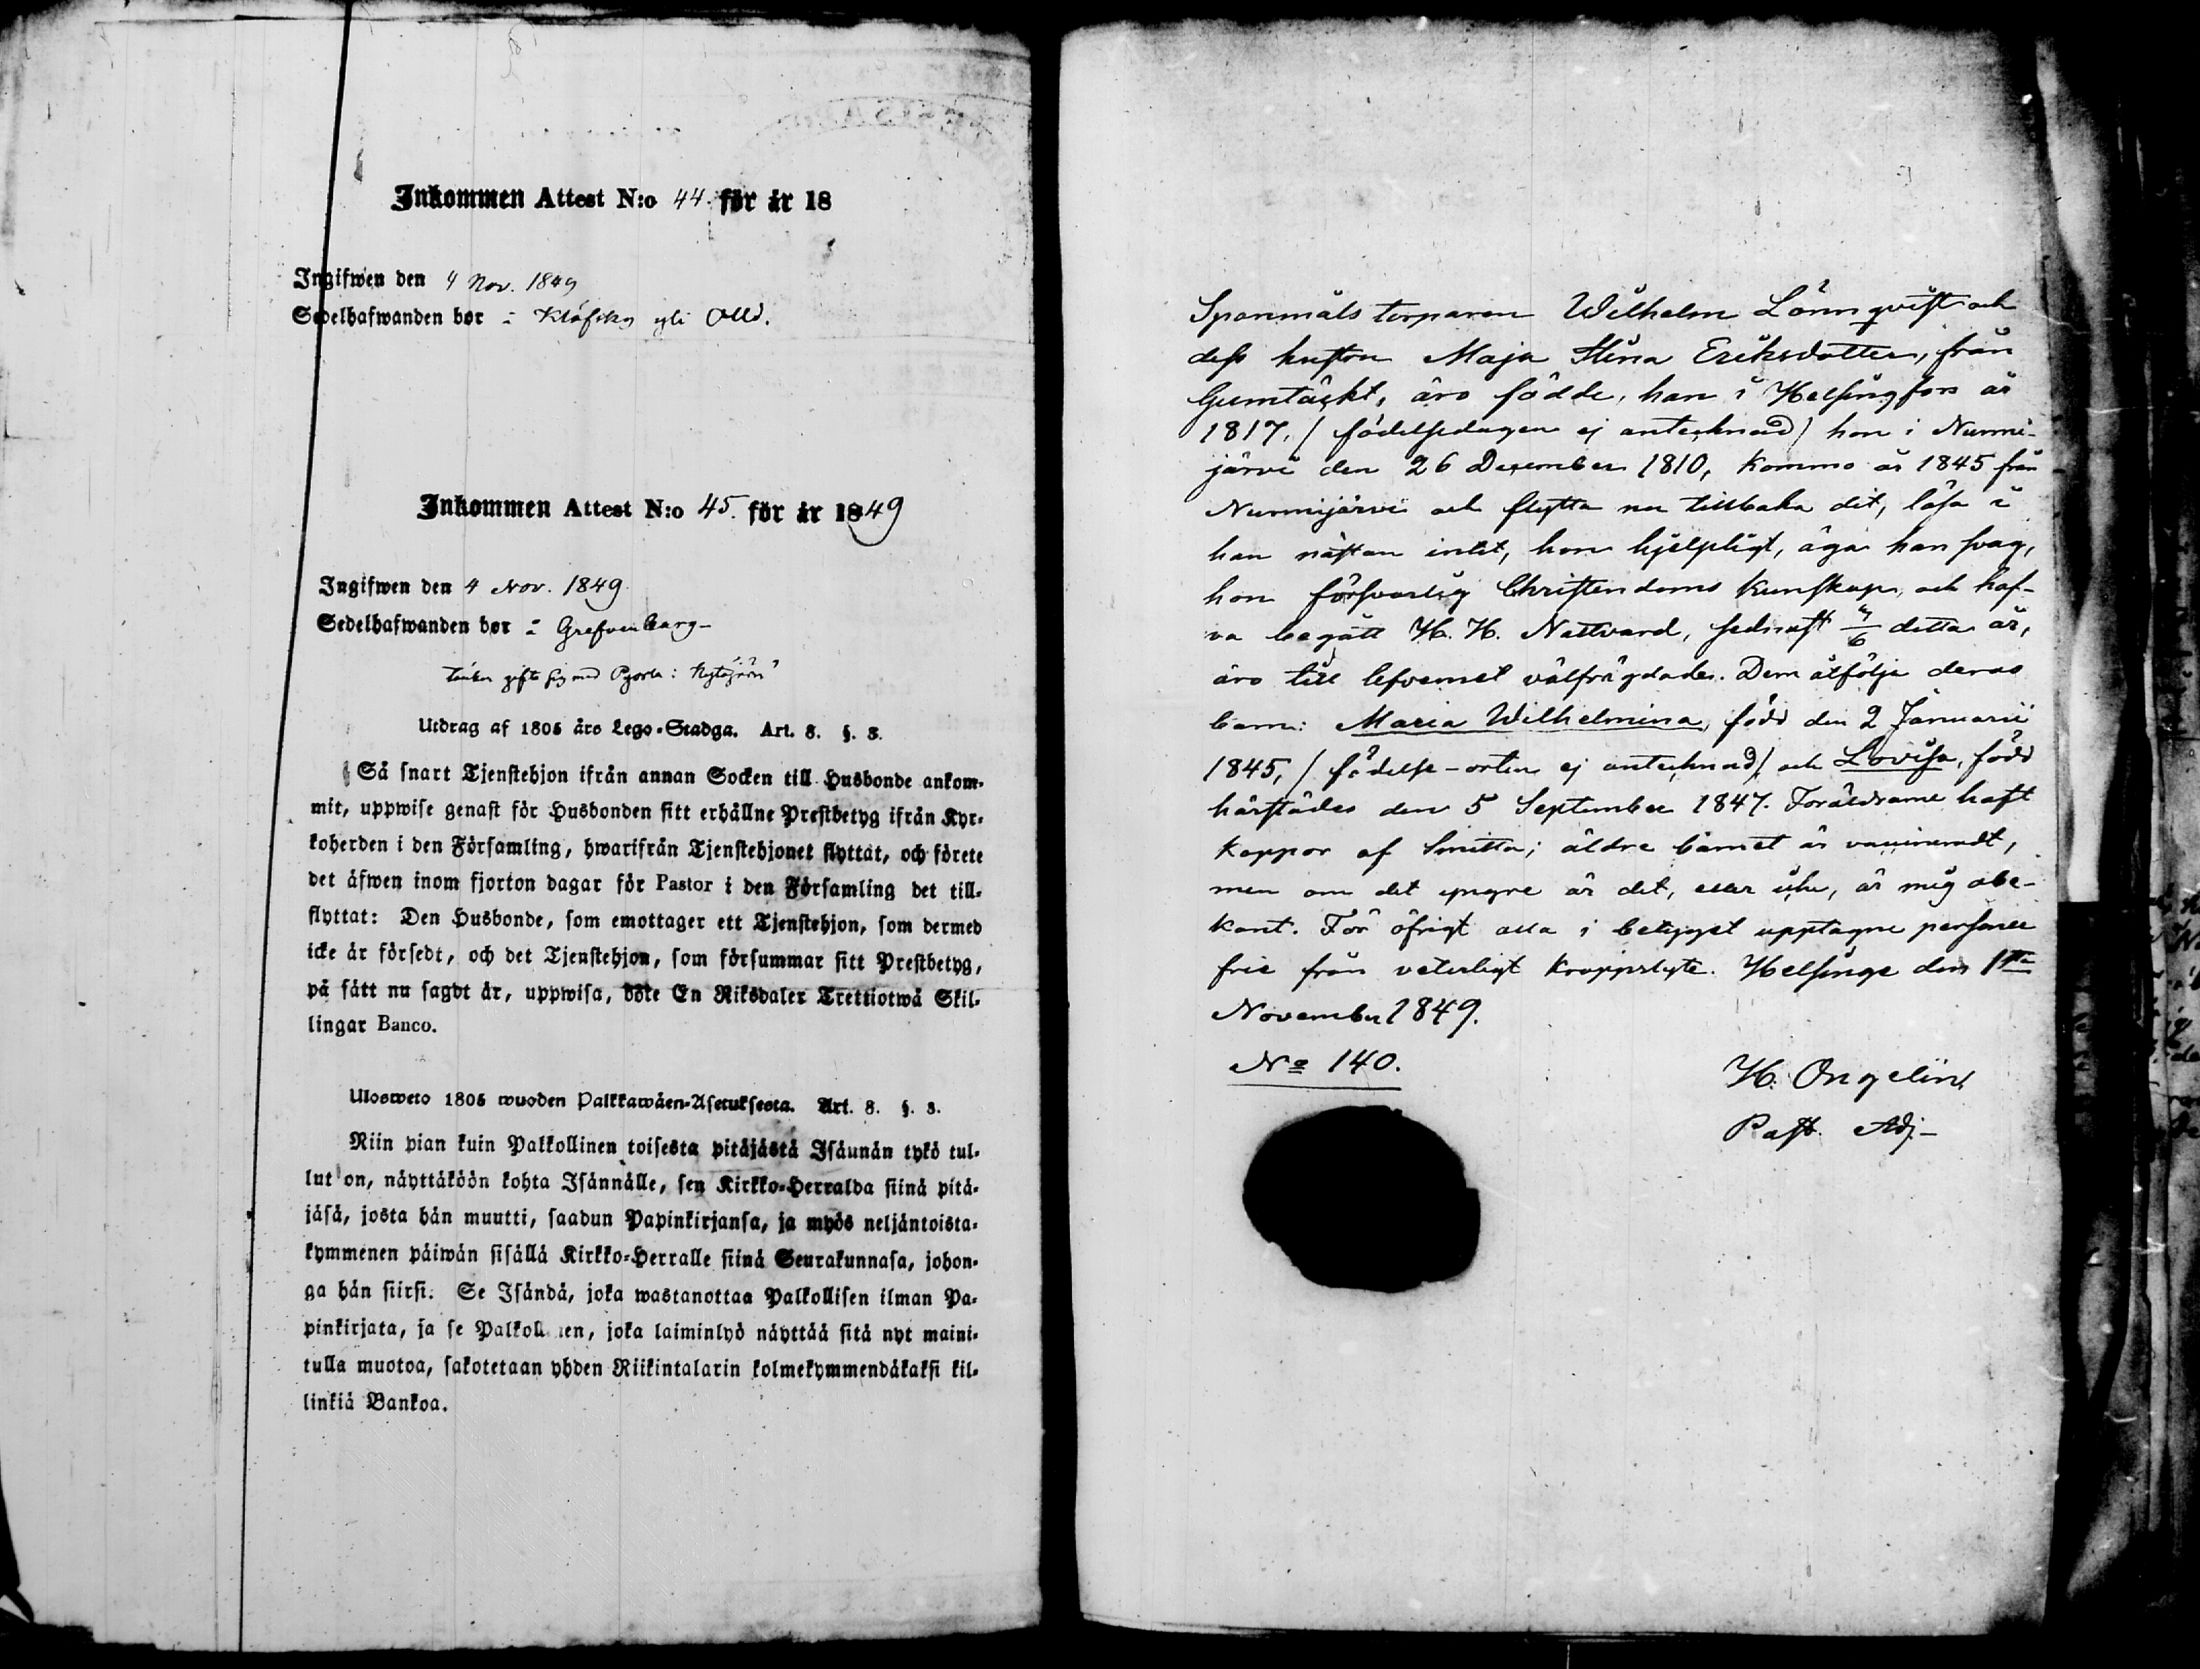 Inkommen Attest N:o 44. för år 18
Ingifwen den 4 Nov. 1849
Sedelhafwanden bor i Klöfskog Olld.
Inkommen Attest N:o 45. för år 1849
Ingifwen den 4 Nov. 1849
Sedelhafwanden bor i Grefvenberg
tänker gifta sig med
Utdrag af 1805 års Lego-Stadga. Art. 8. §. 3.
Så snart Tjenstehjon ifrån annan Socken till Husbonde ankom-
mit, uppwise genast för Husbonden sitt erhållne Prestbetyg ifrån Kyr-
koherden i den Församling, hwarifrån Tjenstehjonet flyttat, och förete
det äfwen inom fjorton dagar för Pastor i den Församling det till-
flyttat: Den Husbonde, som emottager ett Tjenstehjon, som dermed
icke är försedt, och det Tjenstehjon, som försummar sitt Prestbetyg,
på sätt nu sagdt är, uppwisa, böte En Riksdaler Trettiotwå Skil-
lingar Banco.
Ulosweto 1805 wuoden Palkkawäen-Asetuksesta. Art. 8. §. 3.
Niin pian kuin Palkollinen toisesta pitäjästä Isäunän tykö tul-
lut on, näyttäköön kohta Isännälle, sen Kirkko-Herralda siinä pitä-
jäsä, josta hän muutti, saadun Papinkirjansa, ja myös neljäntoista-
kymmenen päiwän sisällä Kirkko-Herralle siinä Seurakunnasa, johon-
ga hän siirsi. Se Isändä, joka wastanottaa Palkollisen ilman Pa-
pinkirjata, ja se Palkoll nen, joka laiminlyö näyttää sitä nyt maini-
tulla muotoa, sakotetaan yhden Riikintalarin kolmekymmendäkaksi kil-
linkiä Bankoa.
Spanmåls torparen Wilhelm Lönnqvist och
dess hustru Maja Stina Eriksdotter, från
Gumtäckt, äro födde, han i Helsingfors år
1817, / födelsedagen ej antecknad / hon i Nurmi-
järvi den 26 December 1810, kommo år 1845 från
Nurmijärvi och flytta nu tillbaka dit, läsa i
han nästan intet, hon hjelpligt, äga han svag,
hon försvarlig Christendoms kunskap, och haf-
va begått H. H. Nattvard, sednast detta år,
äro till lefvernet välfrägdade. Dem åtfölja deras
barn: Maria Wilhelmina, född den 2 Januarii
1845, / födelse-orten ej antecknad / och Lovisa, född
härstädes den 5 September 1847. Föräldrarne haft
koppor af Smitta; äldre barnet är vaccineradt,
men om det yngre är det, eller icke, är mig obe-
kant. För öfrigt alla i betyget upptagne personer
frie från veterligt kroppslyte. Helsinge den 1sta
November 1849.
No 140.
H. Ongelin
Past. Adj.